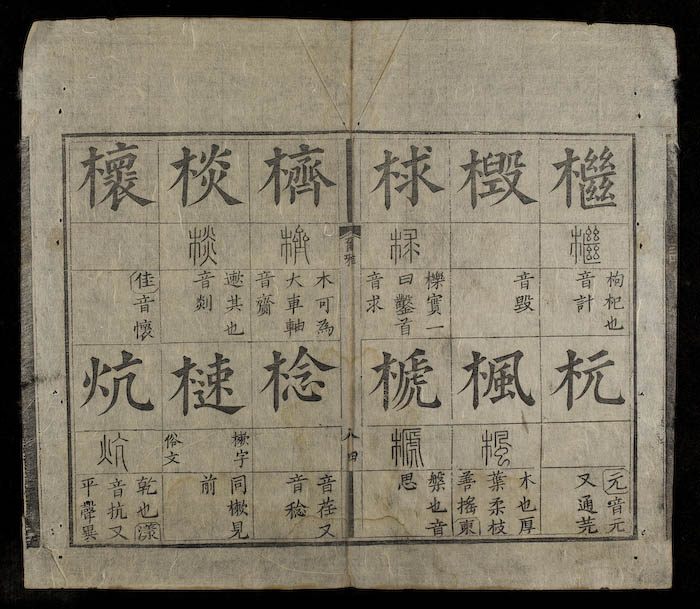 檵
檵
枸杞也
音計
杬
元音元
又通芫
檓
音毀
楓
楓
木也厚
葉柔枝
善搖東
梂
梂
櫟實一
曰鑿首
音求
榹
榹
槃也音
思
爾雅
八四
櫅
櫅
木可為
大車軸
音齌
棯
音荏又
音稔
棪
棪
遬其也
音剡
樕字
俗文
同樕見
前
櫰
佳音懷
炕
炕
乾也漾
音抗又
平聲異